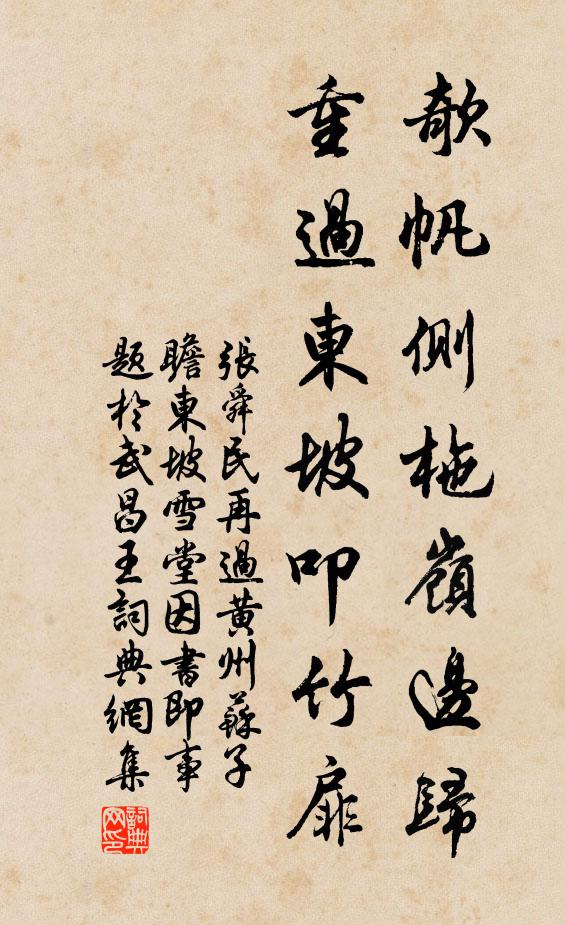 欹帆側柂嶺邊歸
重過東坡叩竹扉
張舜民再過黄州蘇子
瞻東坡雪堂因書即事
題於武昌王詞典網集
詞典网印